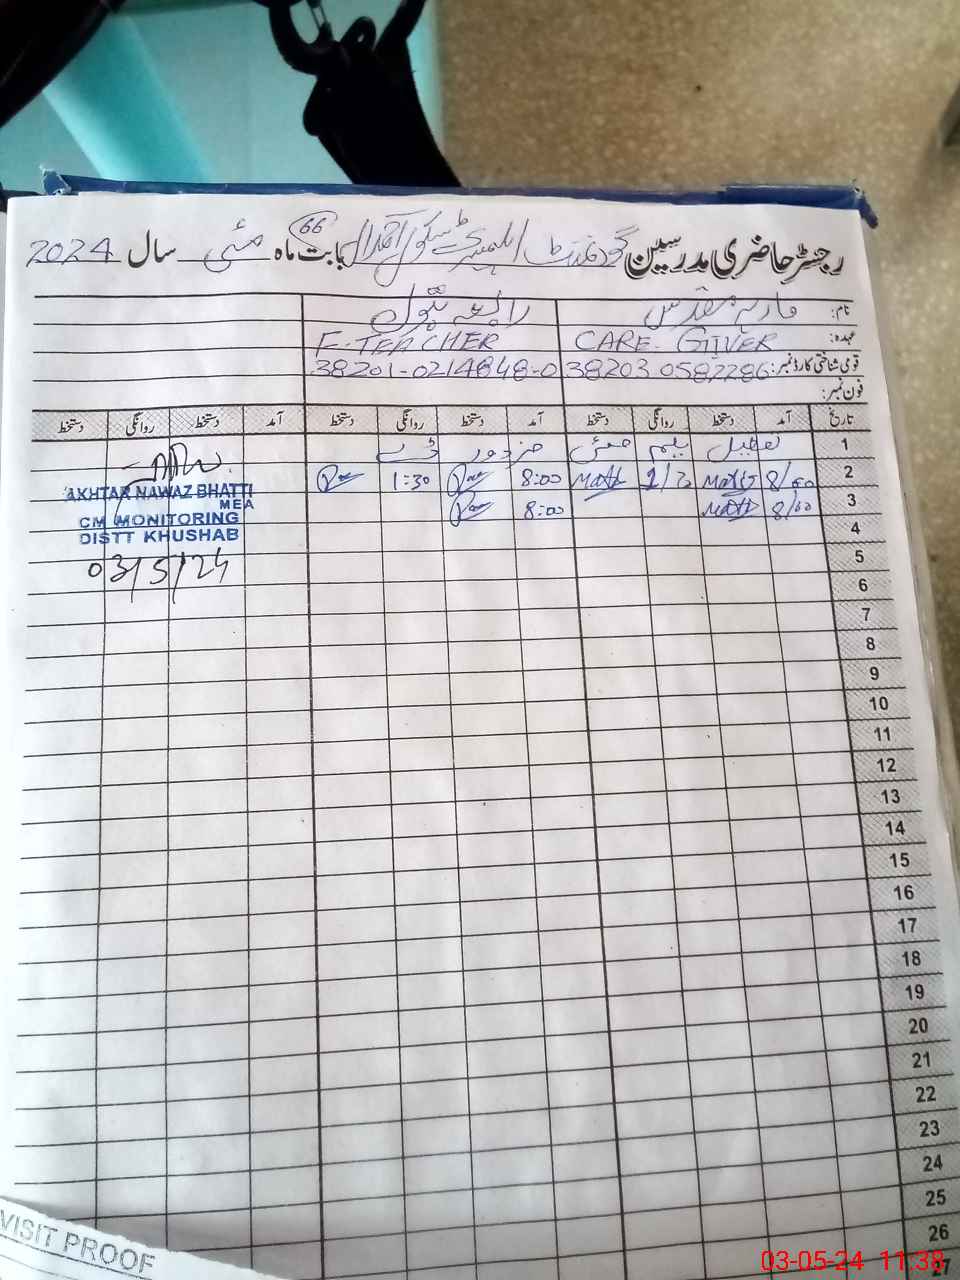 66
رجسٹر حاضری مدرسین گورنمنٹ ایلیمنٹری سکول بابت ماہ مئی سال 2024
نام: ماریہ مقدس رابعہ بتول
عہدہ: CARE-GIVER E-TEACHER
قومی شناختی کارڈ نمبر: 38203 0582286 38201-0214848-0
فون نمبر:
تاریخ آمد دستخط روانگی دستخط آمد دستخط روانگی دستخط آمد دستخط روانگی دستخط
1 تعطیل یکم مئی مزدور ڈے
2 8/00 8:00 1:30
3 8/00 8:00
AKHTAR NAWAZ BHATTI
MEA
CM MONITORING
DISTT KHUSHAB
03/5/24
4
5
6
7
8
9
10
11
12
13
14
15
16
17
18
19
20
21
22
23
24
25
26
27
VISIT PROOF
03-05-24 11:38